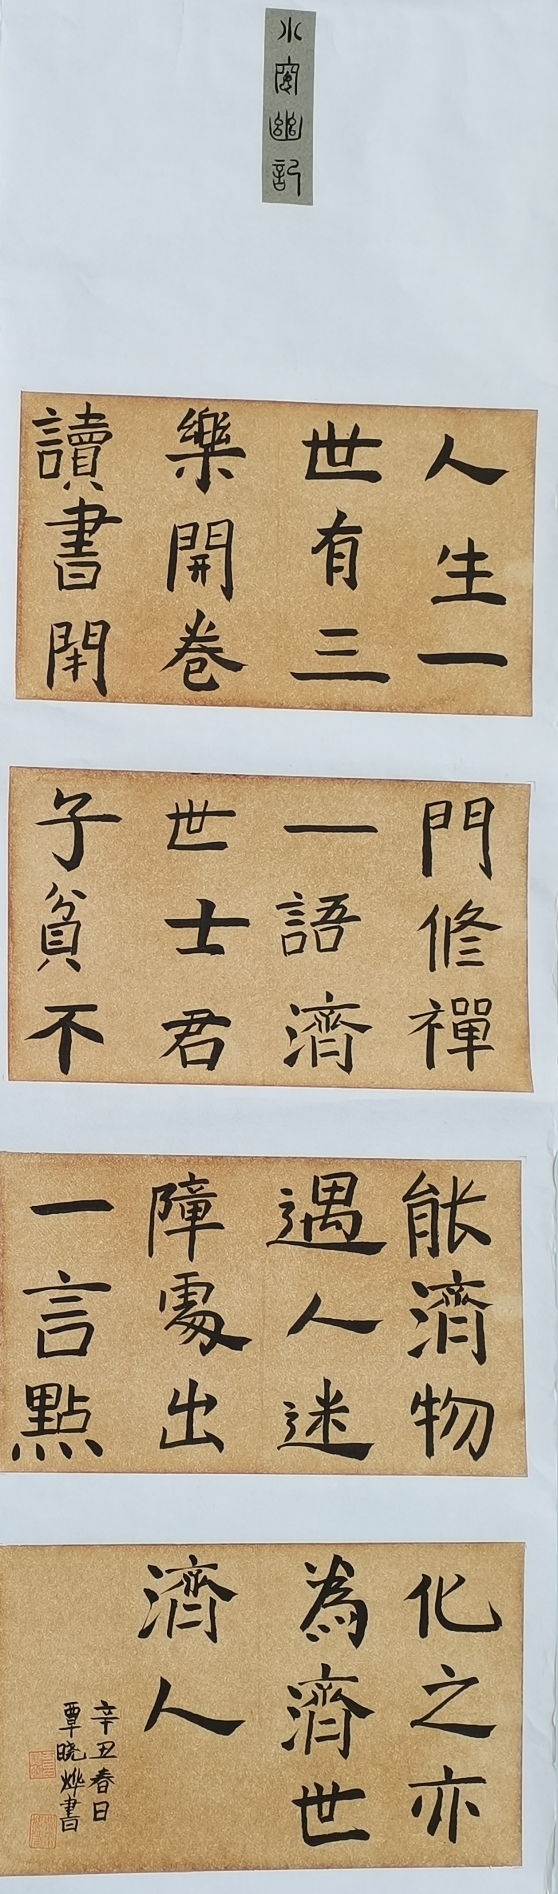 小窗幽記
人生一
世有三
樂開卷
讀書閉
門修禪
一語濟
世士君
子貧不
能濟物
遇人迷
障處出
一言點
化之亦
為濟世
濟人
辛丑春日
覃晓烨書